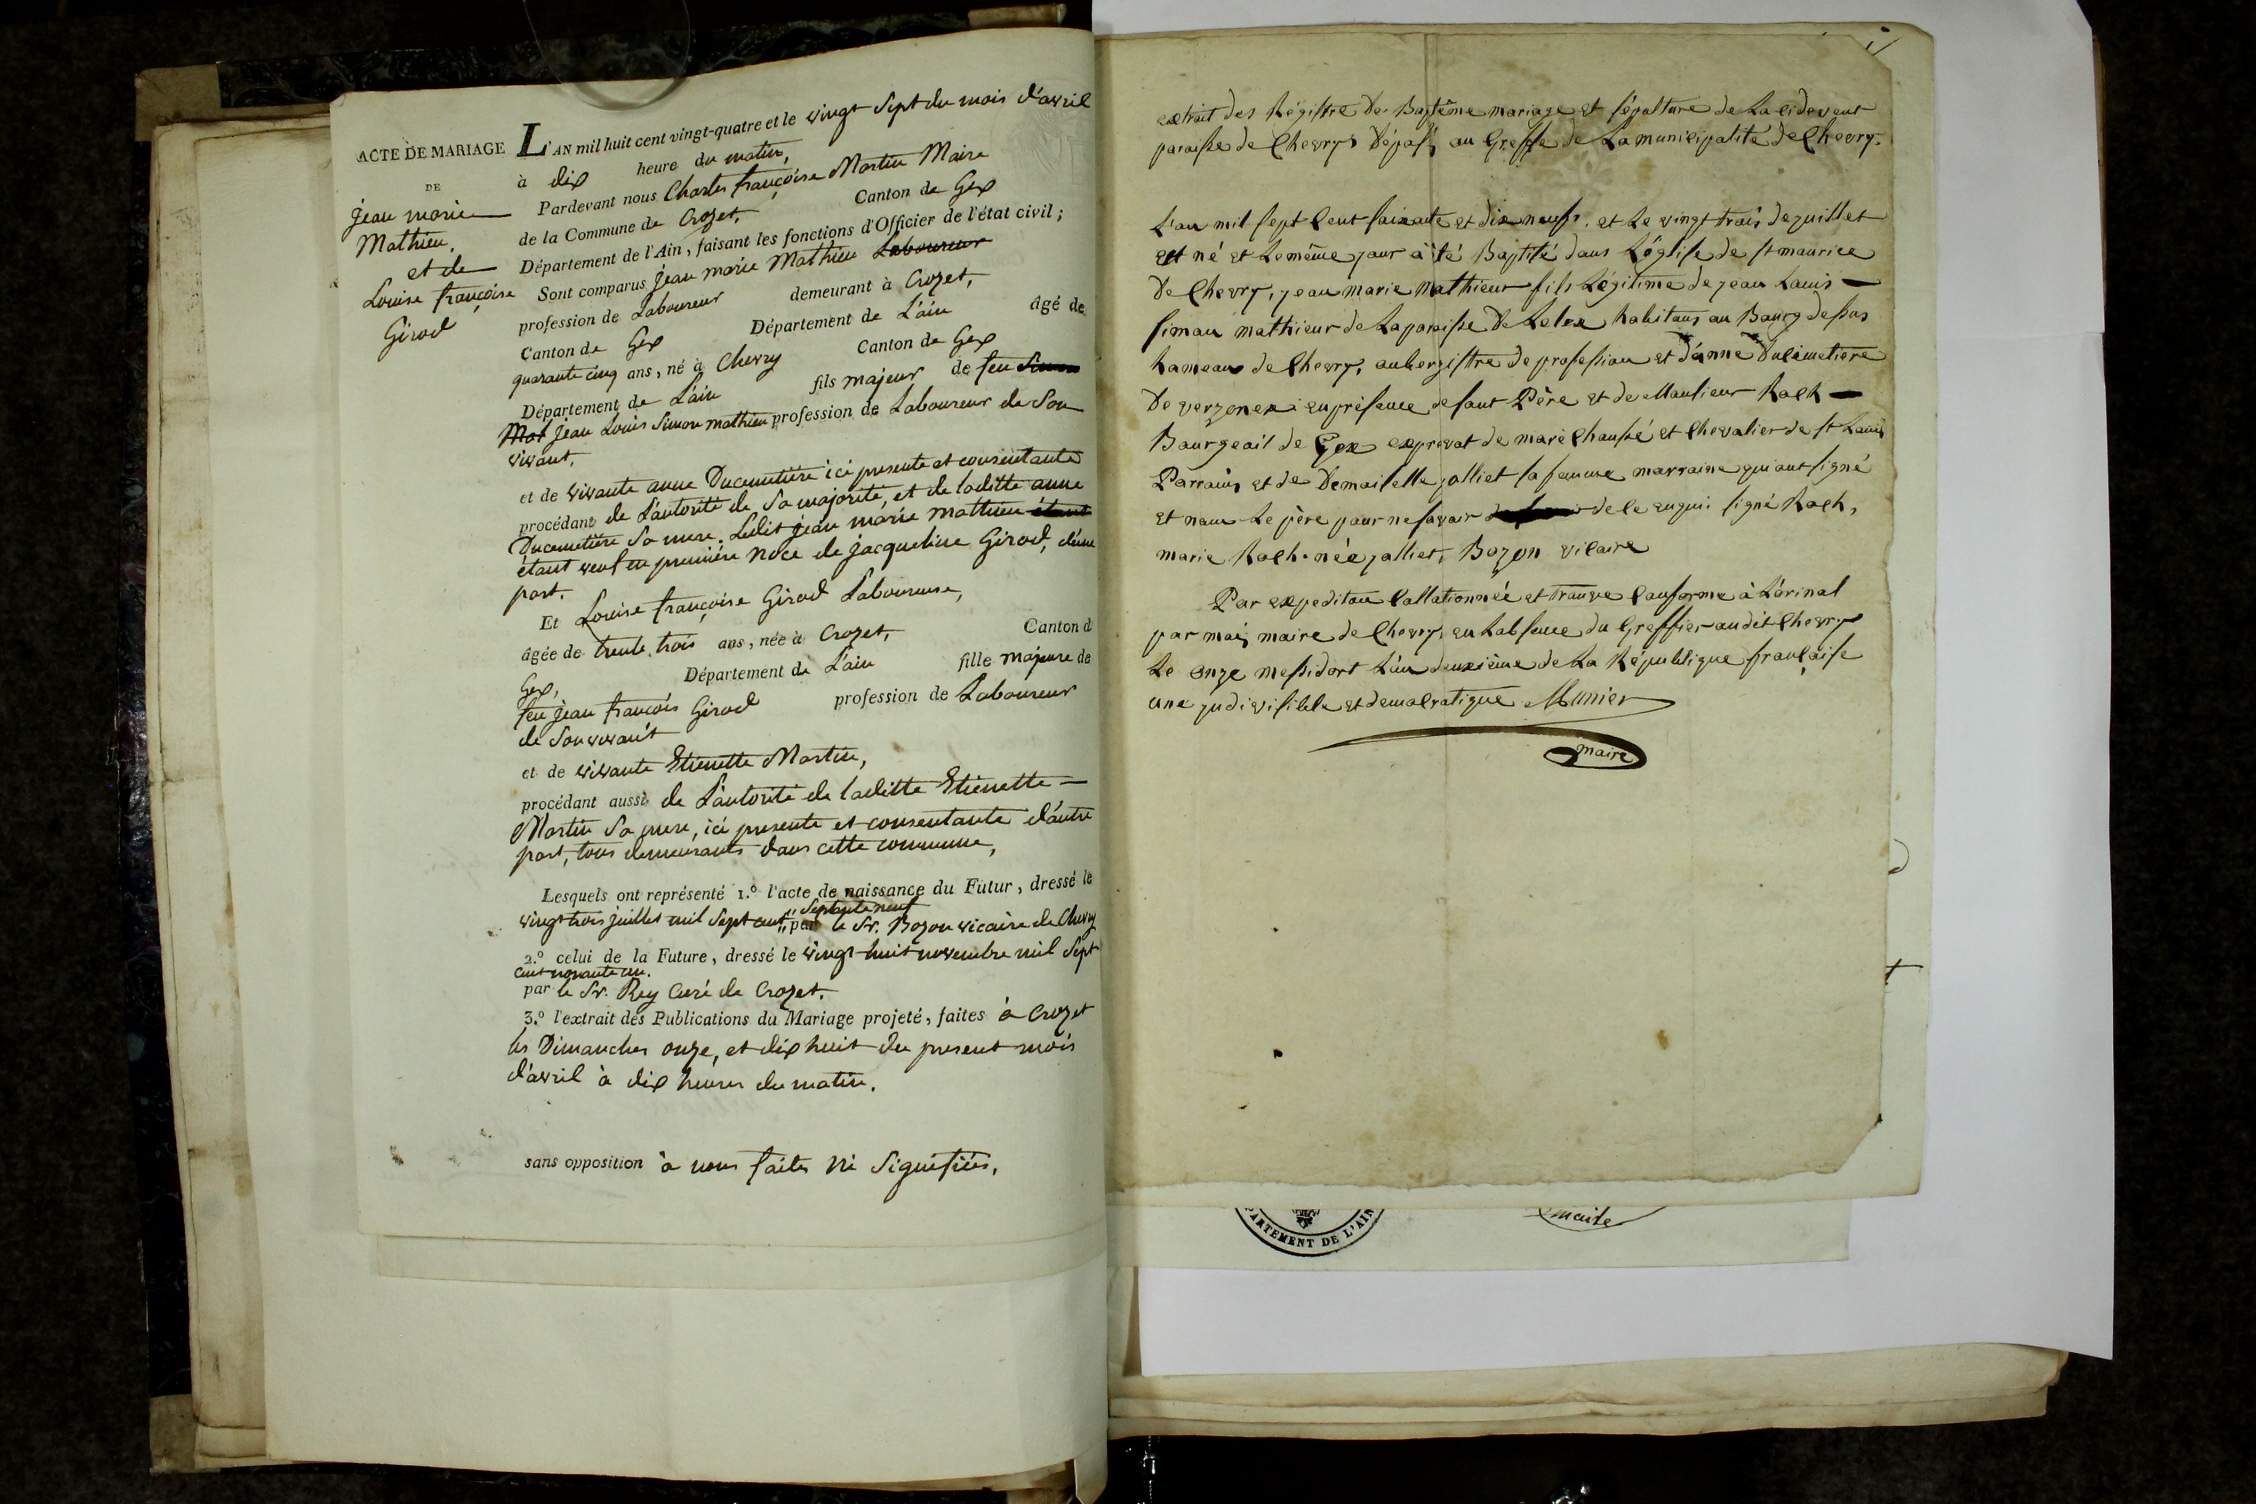 ACTE DE MARIAGE
DE
jean marie
Mathieu,
et de
Louise françoise
Girod
L'AN mil huit cent vingt-quatre et le vingt Sept du mois d'avril
à dix heure du matin,
Pardevant nous Charles françoise Martin Maire
de la Commune de Crozet, Canton de Gex
Département de l'Ain, faisant les fonctions d'Officier de l'état civil;
Sont comparus jean marie Mathieu Laboureur
profession de Laboureur demeurant à Crozet,
Canton de Gex Département de L'ain âgé de
quarante cinq ans, né à Chevry Canton de Gex
Département de L'ain fils majeur de feu Simon
Mat jean Louis Simon mathieu profession de Laboureur de Son
vivant,
et de vivante anne Ducemetière ici presente et consentante
procédant de L'autorité de Sa majorité, et de laditte anne
Ducemetière Sa mere. Ledit jean marie mathieu étant
étant veuf en première Noce de jacqueline Girod, d'une
part.
Et Louise françoise Girod Laboureuse,
âgée de trente trois ans, née à Crozet, Canton d
Gex, Département de L'ain fille majeure de
feu jean françois Girod profession de Laboureur
de Son vivant
et de vivante Etienette Martin,
procédant aussi de L'autorité de laditte Etienette
Martin Sa mere, ici presente et consentante d'autre
part, tous demeurants dans cette commune,
Lesquels ont représenté 1.º l'acte de naissance du Futur, dressé le
vingt trois juillet mil Sept cent "Septante neuf" par le Sr. Bozon vicaire de Chevry
2.º celui de la Future, dressé le vingt huit novembre mil Sept
cent nonante un.
par le Sr. Rey Curé de Crozet.
3.º l'extrait des Publications du Mariage projeté, faites à Crozet
les Dimanches onze, et dix huit du present mois
d'avril à dix heures du matin.
sans opposition à nous faites Ni Signifiées,
extrait des Régistre De Baptême mariage et sépulture de La cidevent
paroisse de Chevry Dépasé au Greffe de La municipalité de Chevry.
L'an mil sept Cent soixante et dix neufs. et Le vingt trois de juillet
est né et Le même jour à été Baptisé dans L'église de st maurice
De Chevry, jean marie Mathieur fils Légitime de jean Louis
simon mathieur de La paroisse De Lelex habitans au Bourg dessus
hameau de Chevry, aubergistre de profession et d'anne Ducimetiere
De verzonex en présence desant Père et de Monsieur Roch
Bourgeoit de Gex exprevot de maréchaussé et Chevalier de st Louis
Parrains et de Demaiselle jolliet sa femme marraine qui ont signé
et non Le père pour ne savoir de ce enquis signé Roch,
marie Roch née jolliet, Bozon vicaire
Par expediton Collationnée et trouvé Conforme à L'orinal
par moi, maire de Chevry en L'absence du Greffier audit Chevry
Le onze messidort L'an deuxième de La République française
une jndivisible et democratique Munier
maire
PARTEMENT DE L'AIN
maire